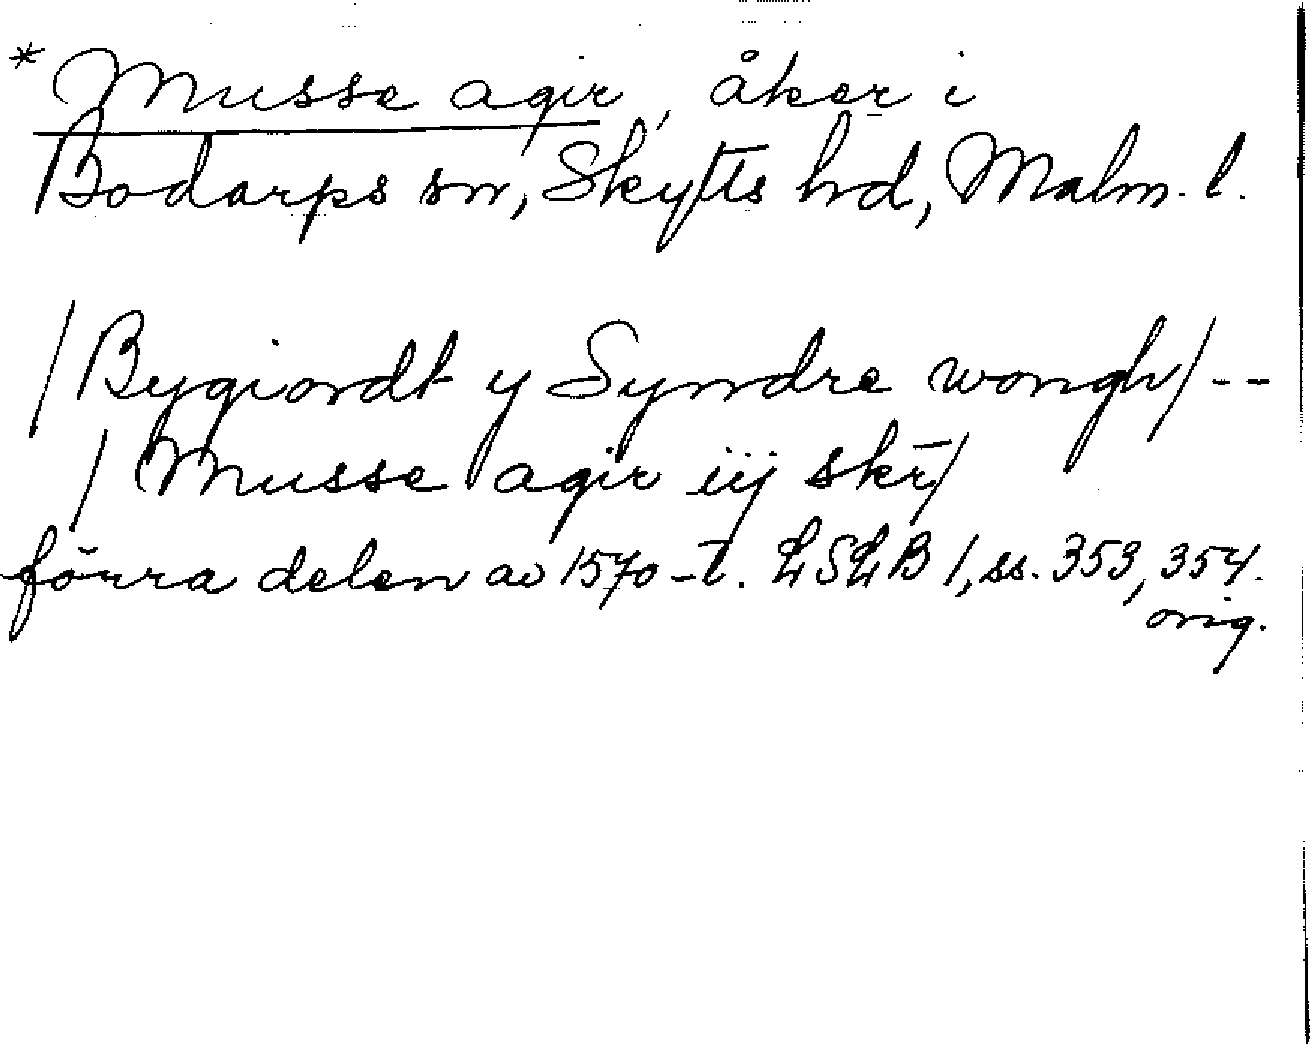 * Musse agir, åker i
Bodarps sn, Skytts hd, Malm. l.
/Bygiordt y Syndre wongh/--
/Musse agir iij skr̄/
förra delen av 1570-t. LSLB 1, ss. 353, 354.
orig.